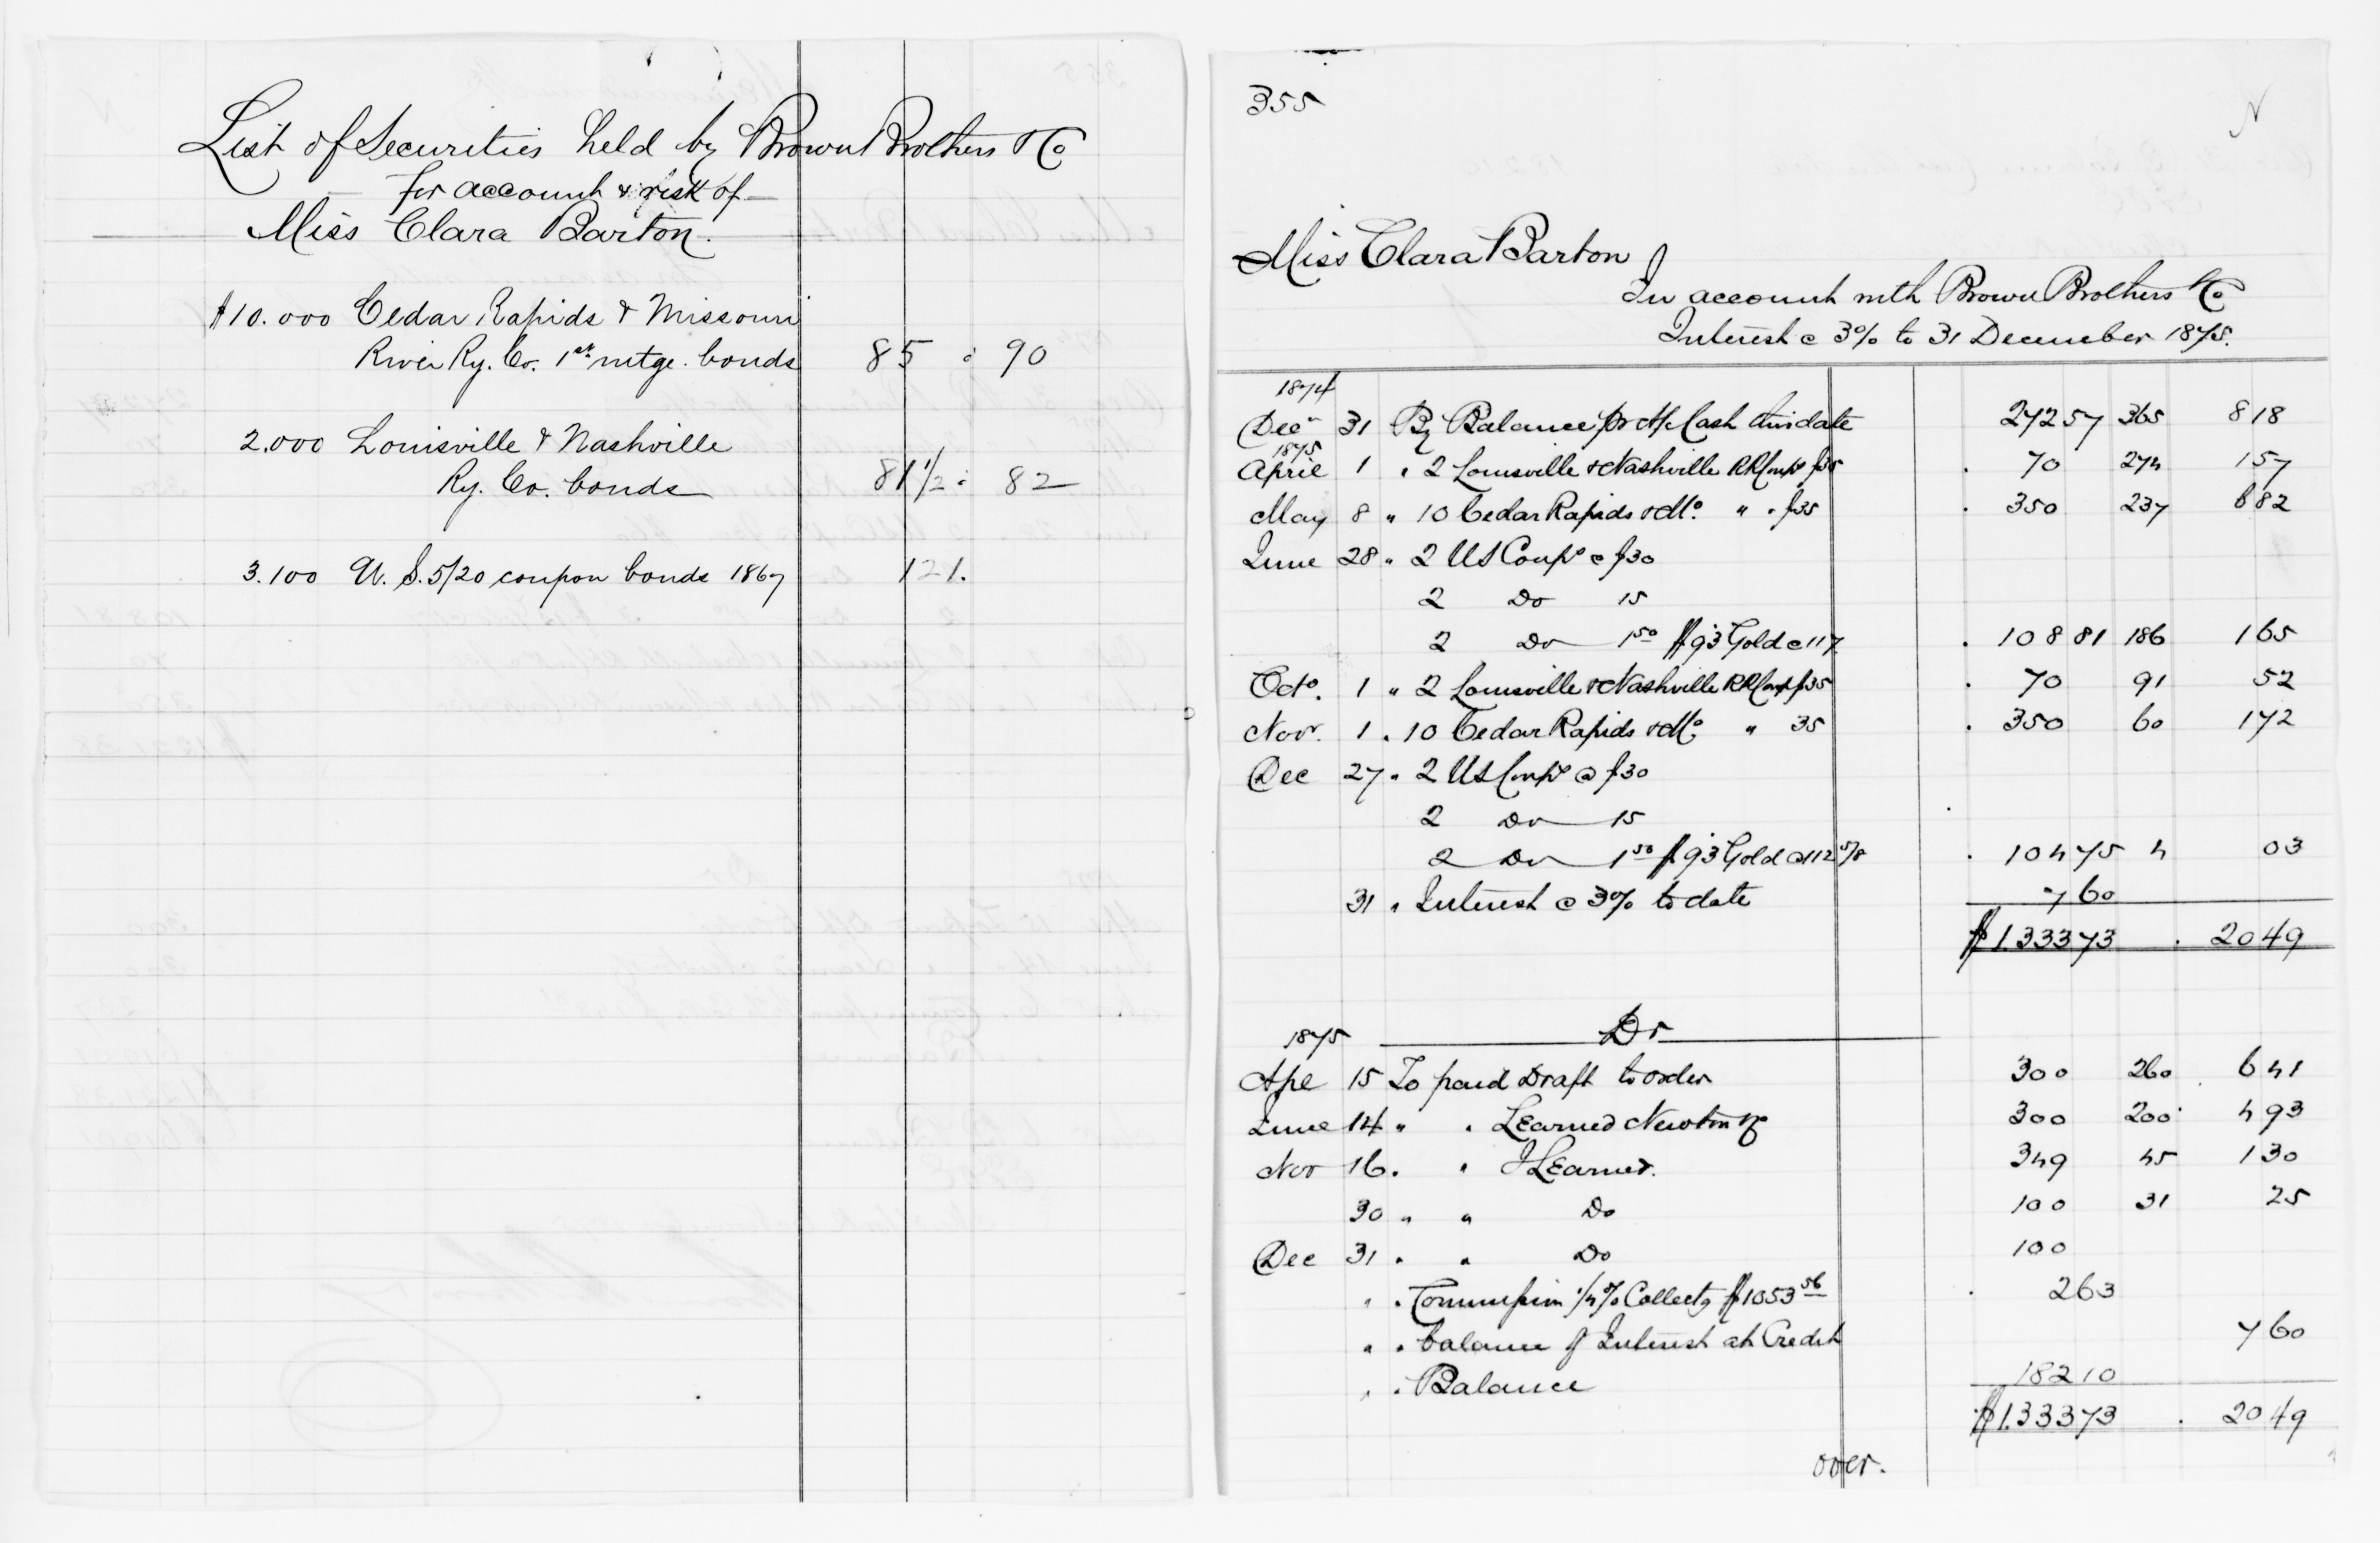 List of Securities held by Brown Brothers & Co
for account & risk of
Miss Clara Barton.
$10.000 Cedar Rapids & Missouri
River Ry. Co. 1st mtge. bonds 85 : 90
2.000 Louisville & Nashville
Ry. Co. bonds 81 1/2 : 82
3.100 U. S. 5/20 coupon bonds 1867 121.
355
N
Miss Clara Barton
In account with Brown Brothers & Co
Interest @ 3% to 31 December 1875.
1874
Decr 31 By Balance pr A/c Cash this date 272 57 365 8 18
1875
April 1 " 2 Louisville & Nashville RR Coups $35 70 274 1 57
May 8 " 10 Cedar Rapids & Mo. " " $35 350 237 6 82
June 28 " 2 US Coups @ $30
2 Do 15
2 Do 1 50 $93 Gold @ 117 108 81 186 1 65
Octo. 1 " 2 Louisville & Nashville RR Coup $35 70 91 52
Nov. 1 " 10 Cedar Rapids & Mo. " 35 350 60 1 72
Dec 27 " 2 US Coups @ $30
2 Do 15
2 Do 1 50 $93 Gold @ 112 5/8 104 75 4 03
31 " Interest @ 3% to date 7 60
$1.333 73 . 20 49
Dr
1875
Apl 15 To paid Draft to order 300 260 6 41
June 14 " " Learned Newton & Co 300 200 4 93
Nov 16 " " J Learned. 349 45 1 30
30 " " Do 100 31 25
Dec 31 " " Do 100
" " Commission 1/4% Collectg $1053 56 2 63
" " balance of Interest at Credit 7 60
" " Balance 182 10
$1.333 73 . 20 49
over.